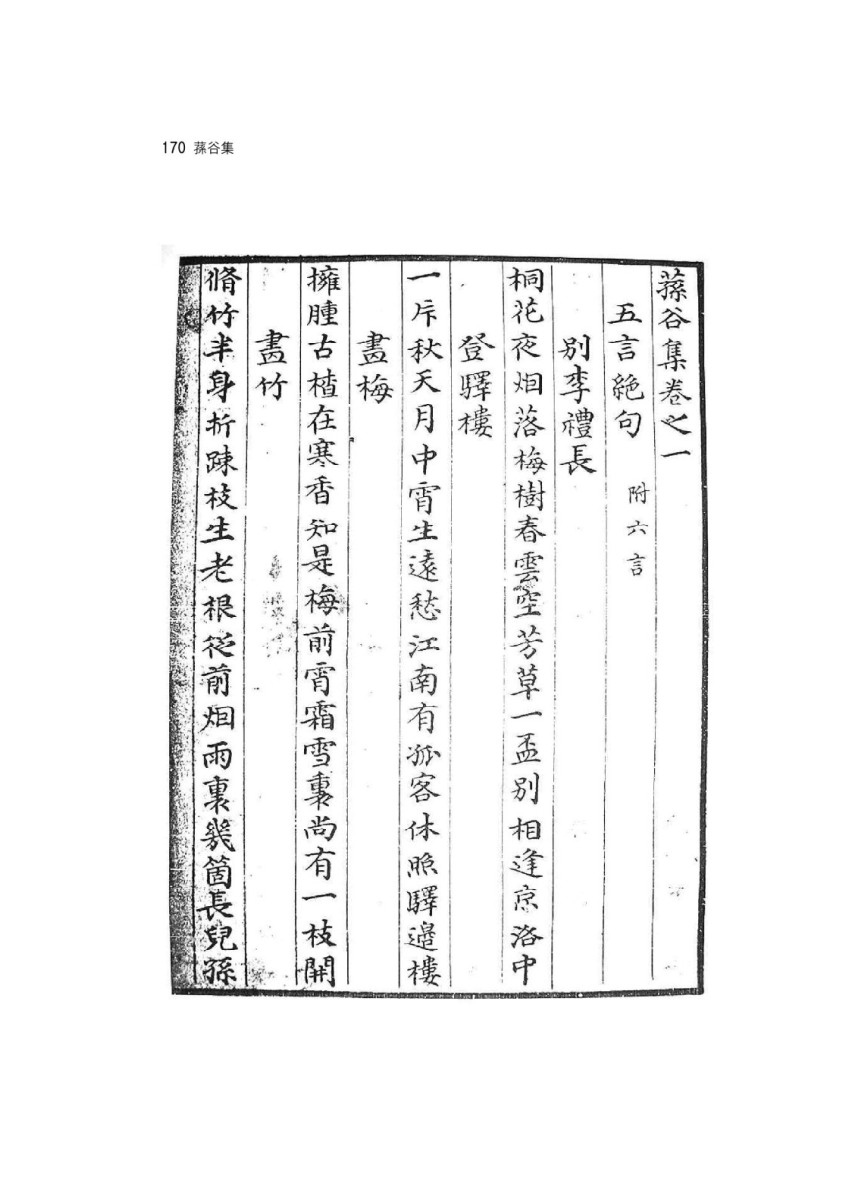 170 蓀谷集
蓀谷集卷之一
五言絶句 附六言
別李禮長
桐花夜烟落梅樹春雲空芳草一盃別相逢京洛中
登驛樓
一片秋天月中霄生遠愁江南有孤客休照驛邊樓
畵梅
擁腫古楂在寒香知是梅前宵霜雪裏尚有一枝開
畵竹
脩竹半身折踈枝生老根從前烟雨裏幾箇長兒孫